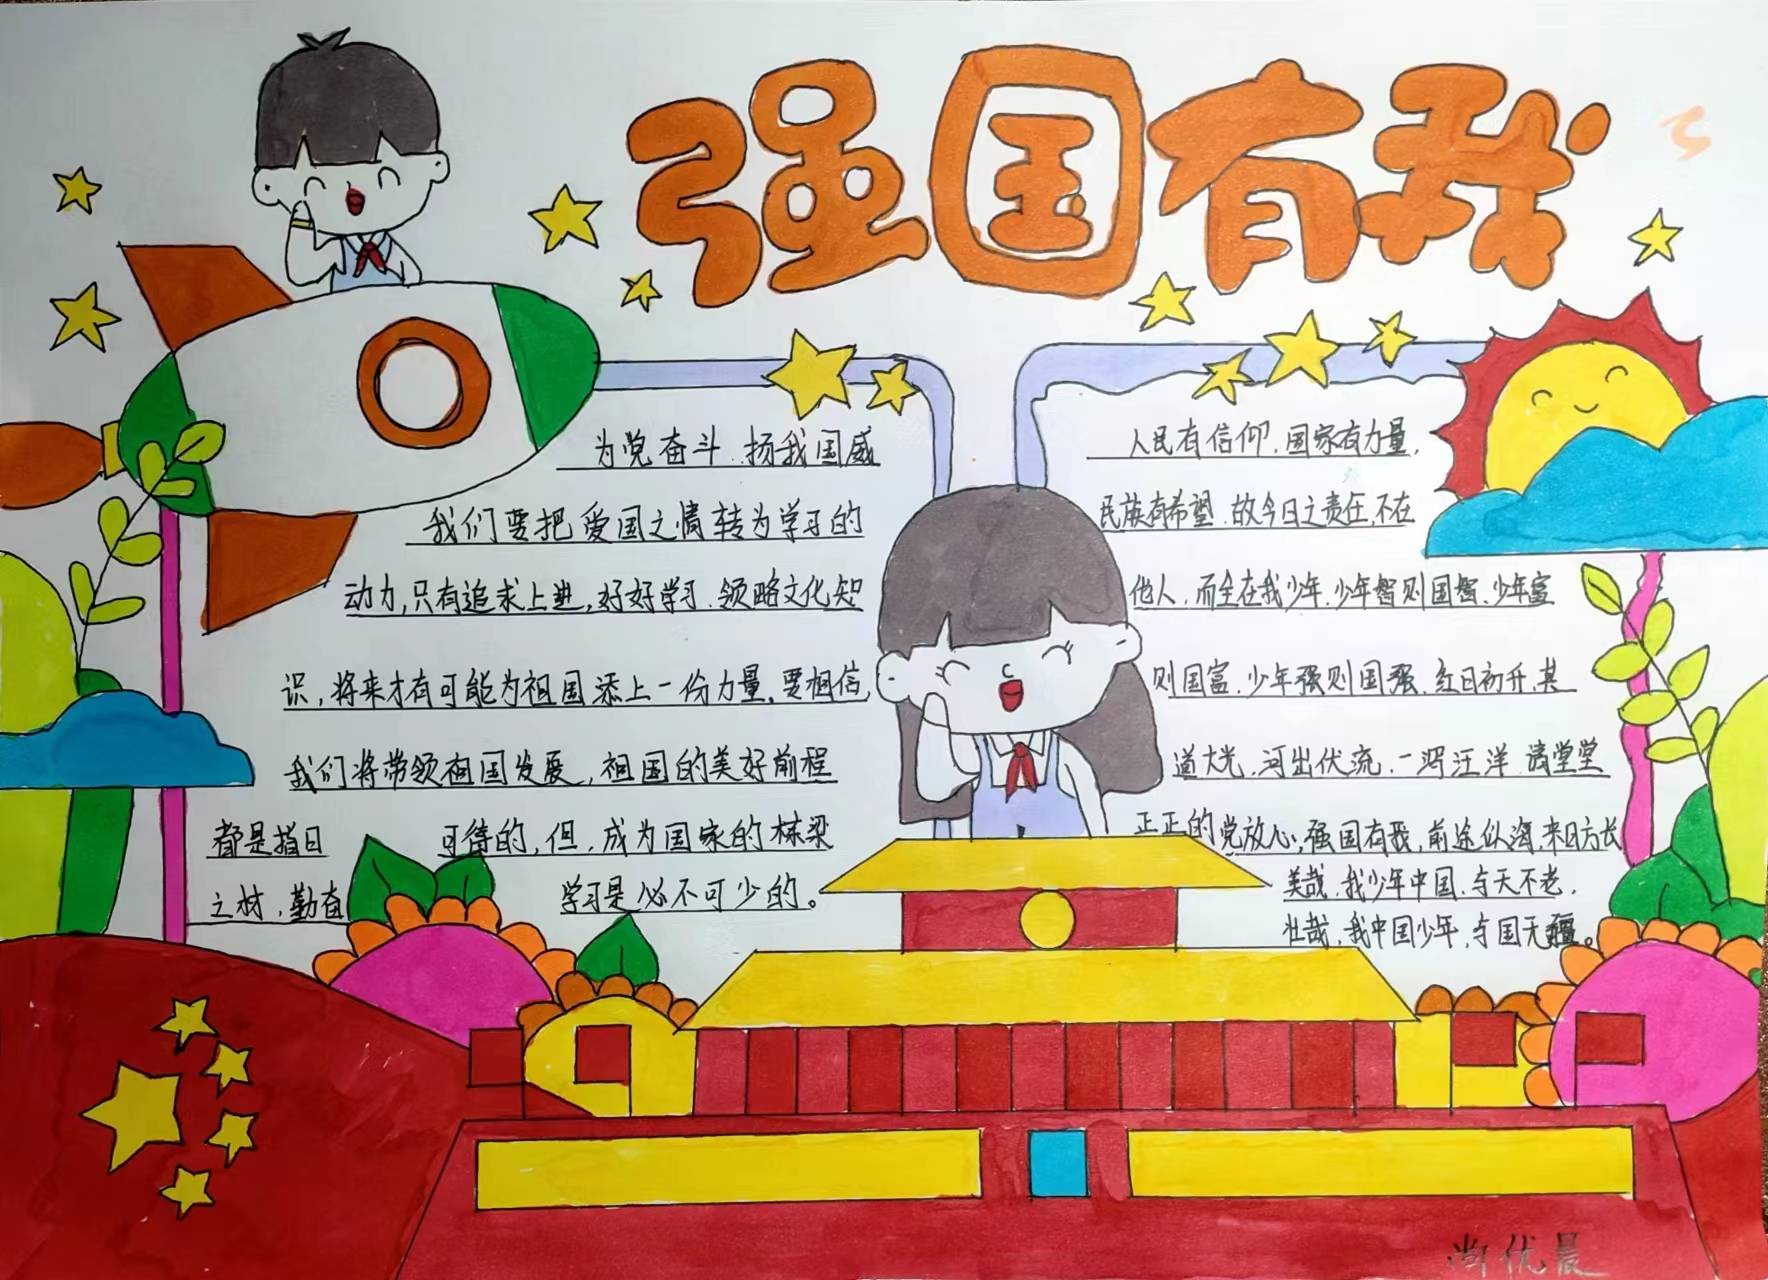 强国有我
为党奋斗.扬我国威
我们要把爱国之情转为学习的
动力,只有追求上进,好好学习.领略文化知
识,将来才有可能为祖国添上一份力量.要相信,
我们将带领祖国发展,祖国的美好前程
都是指日 可待的,但,成为国家的栋梁
之材,勤奋 学习是必不可少的。
人民有信仰.国家有力量,
民族有希望.故今日之责任,不在
他人,而全在我少年.少年智则国智.少年富
则国富.少年强则国强.红日初升,其
道大光.河出伏流.一泻汪洋.请堂堂
正正的党放心;强国有我,前途似海,来日方长
美哉.我少年中国.与天不老,
壮哉,我中国少年,与国无疆。
尚优晨